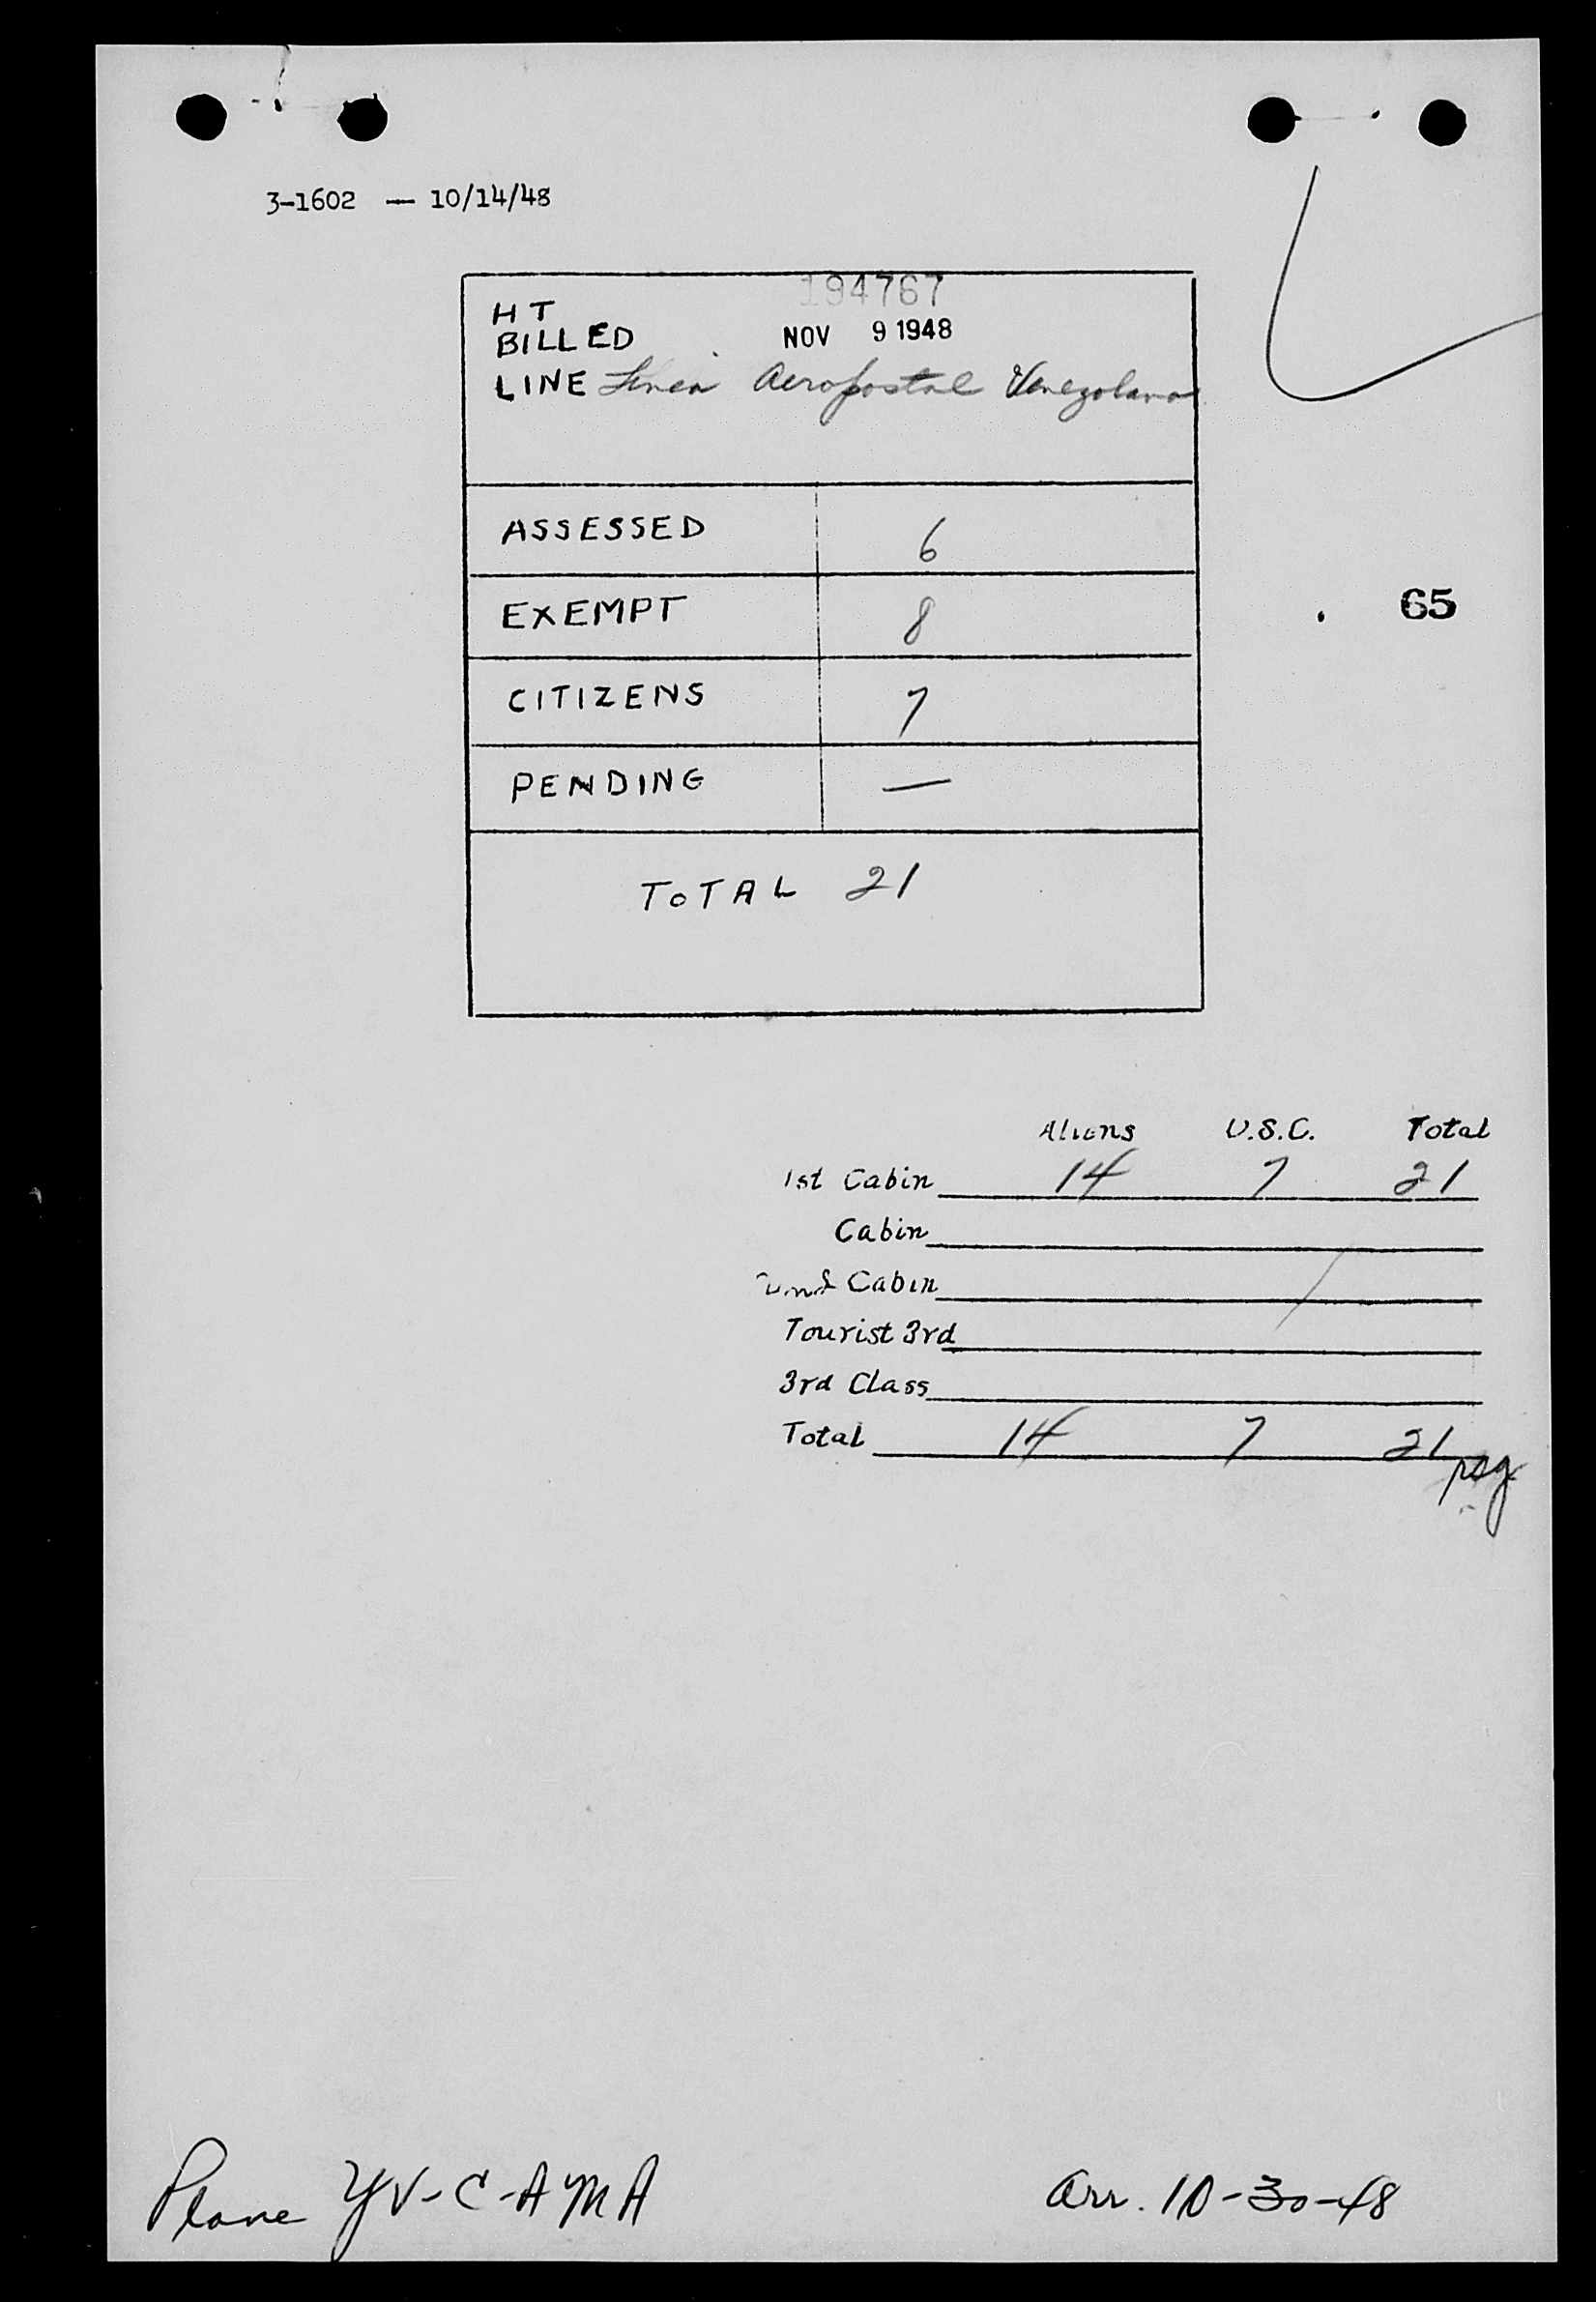 3-1602 — 10/14/48
194767
HT
BILLED NOV 9 1948
LINE Linea Aeropostal Venezolana
ASSESSED 6
EXEMPT 8
65
CITIZENS 7
PENDING —
TOTAL 21
Aliens U.S.C. Total
1st Cabin 14 7 21
Cabin
2nd Cabin
Tourist 3rd
3rd Class
Total 14 7 21
psg
Plane YV-C-AMA Arr. 10-30-48